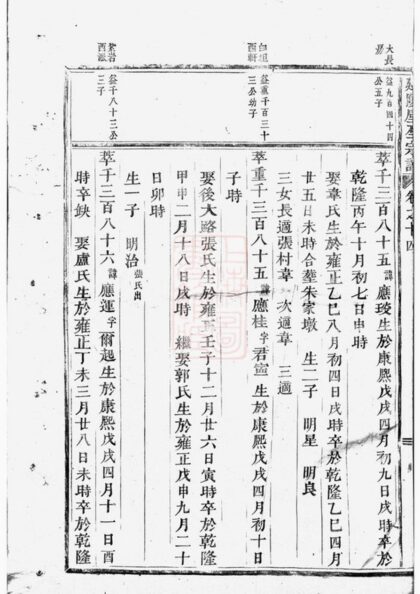 卷之十四
大長
益九百四十四
公五子
萃千三百八十五諱應琁生於康熙戊戌四月初九日戌時卒於
乾隆丙午十月初七日申時
娶韋氏生於雍正乙巳八月初四日戌時卒於乾隆乙巳四月
廿五日未時合塟朱家墩 生二子 明星 明良
三女長適張村韋 次適韋 三適
白坦
西軒
益重千百三十
三公幼子
萃重千三百八十五諱應桂字君寵生於康熙戊戌四月初十日
子時
娶後大路張氏生於雍正壬子十二月廿六日寅時卒於乾隆
甲申二月十八日戌時 繼娶郭氏生於雍正戊申九月二十
日卯時
生一子 明治張氏出
紫岩
西派
益千八十三公
三子
萃千三百八十六諱應運字爾起生於康熙戊戌四月十一日酉
時卒缺 娶盧氏生於雍正丁未三月廿八日未時卒於乾隆